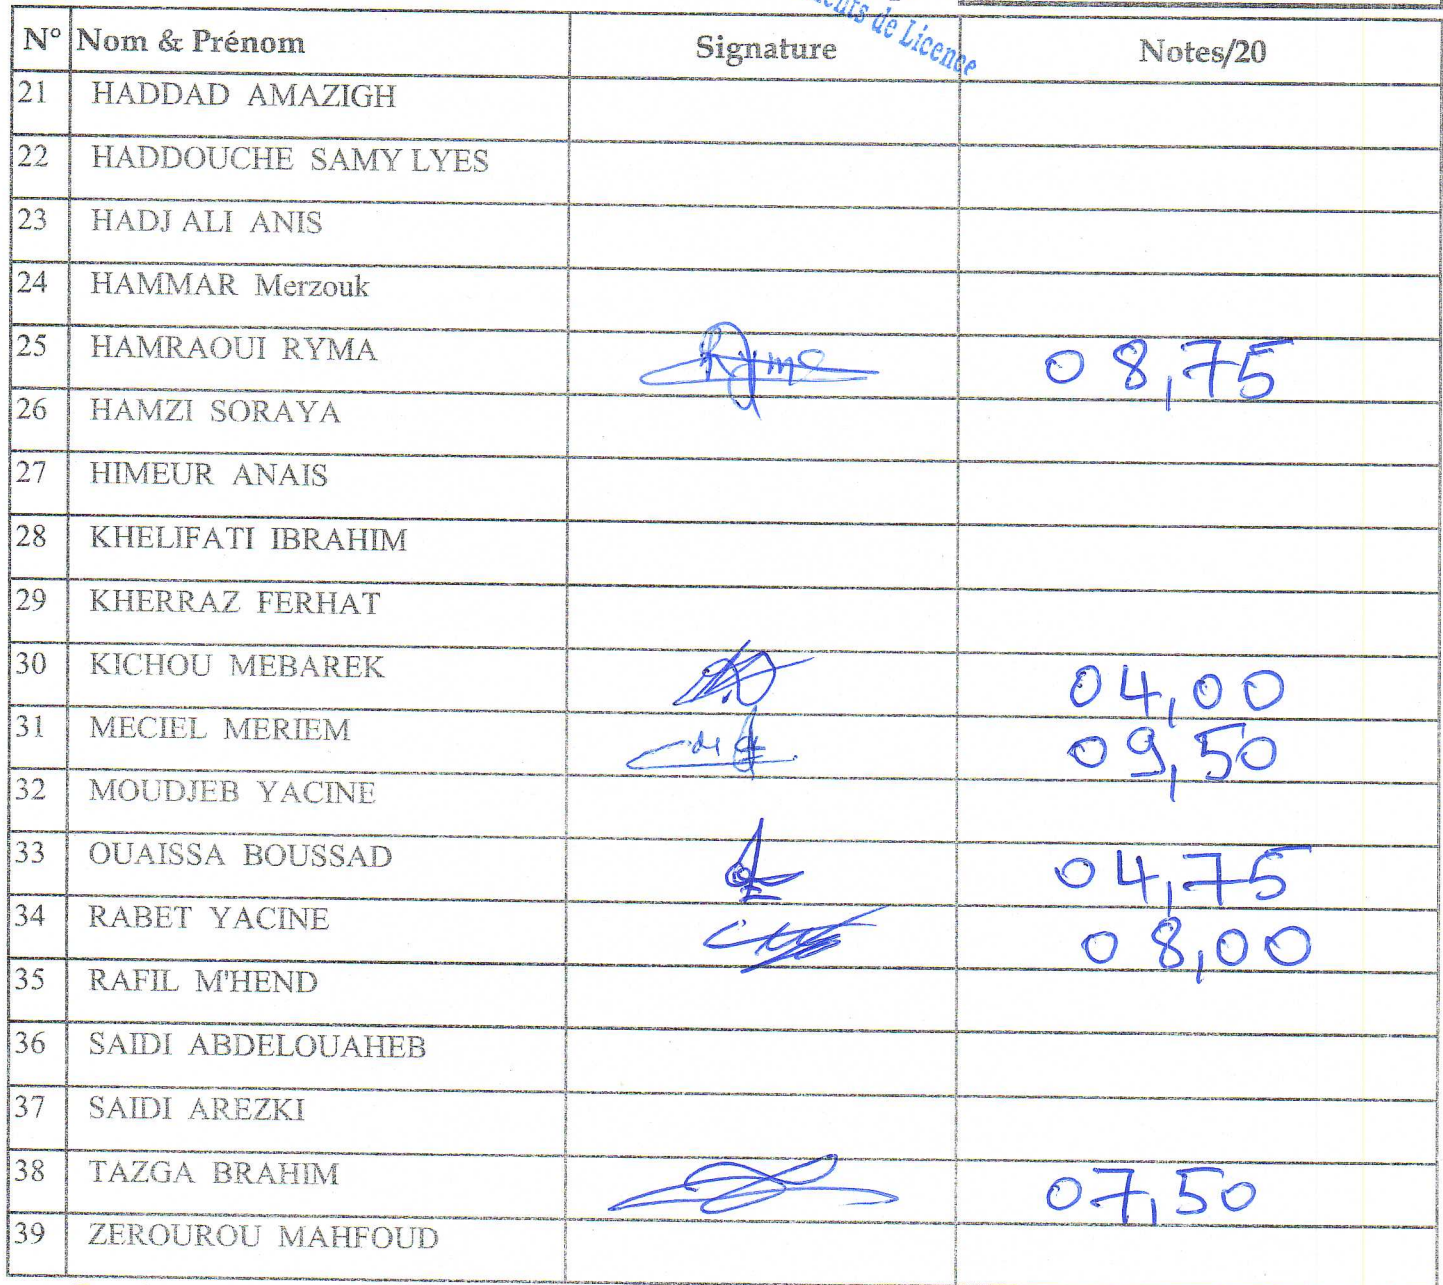 de Licence
N° Nom & Prénom Signature Notes/20
21 HADDAD AMAZIGH
22 HADDOUCHE SAMY LYES
23 HADJ ALI ANIS
24 HAMMAR Merzouk
25 HAMRAOUI RYMA Ryma 08,75
26 HAMZI SORAYA
27 HIMEUR ANAIS
28 KHELIFATI IBRAHIM
29 KHERRAZ FERHAT
30 KICHOU MEBAREK 04,00
31 MECIEL MERIEM 09,50
32 MOUDJEB YACINE
33 OUAISSA BOUSSAD 04,75
34 RABET YACINE 08,00
35 RAFIL M'HEND
36 SAIDI ABDELOUAHEB
37 SAIDI AREZKI
38 TAZGA BRAHIM 07,50
39 ZEROUROU MAHFOUD